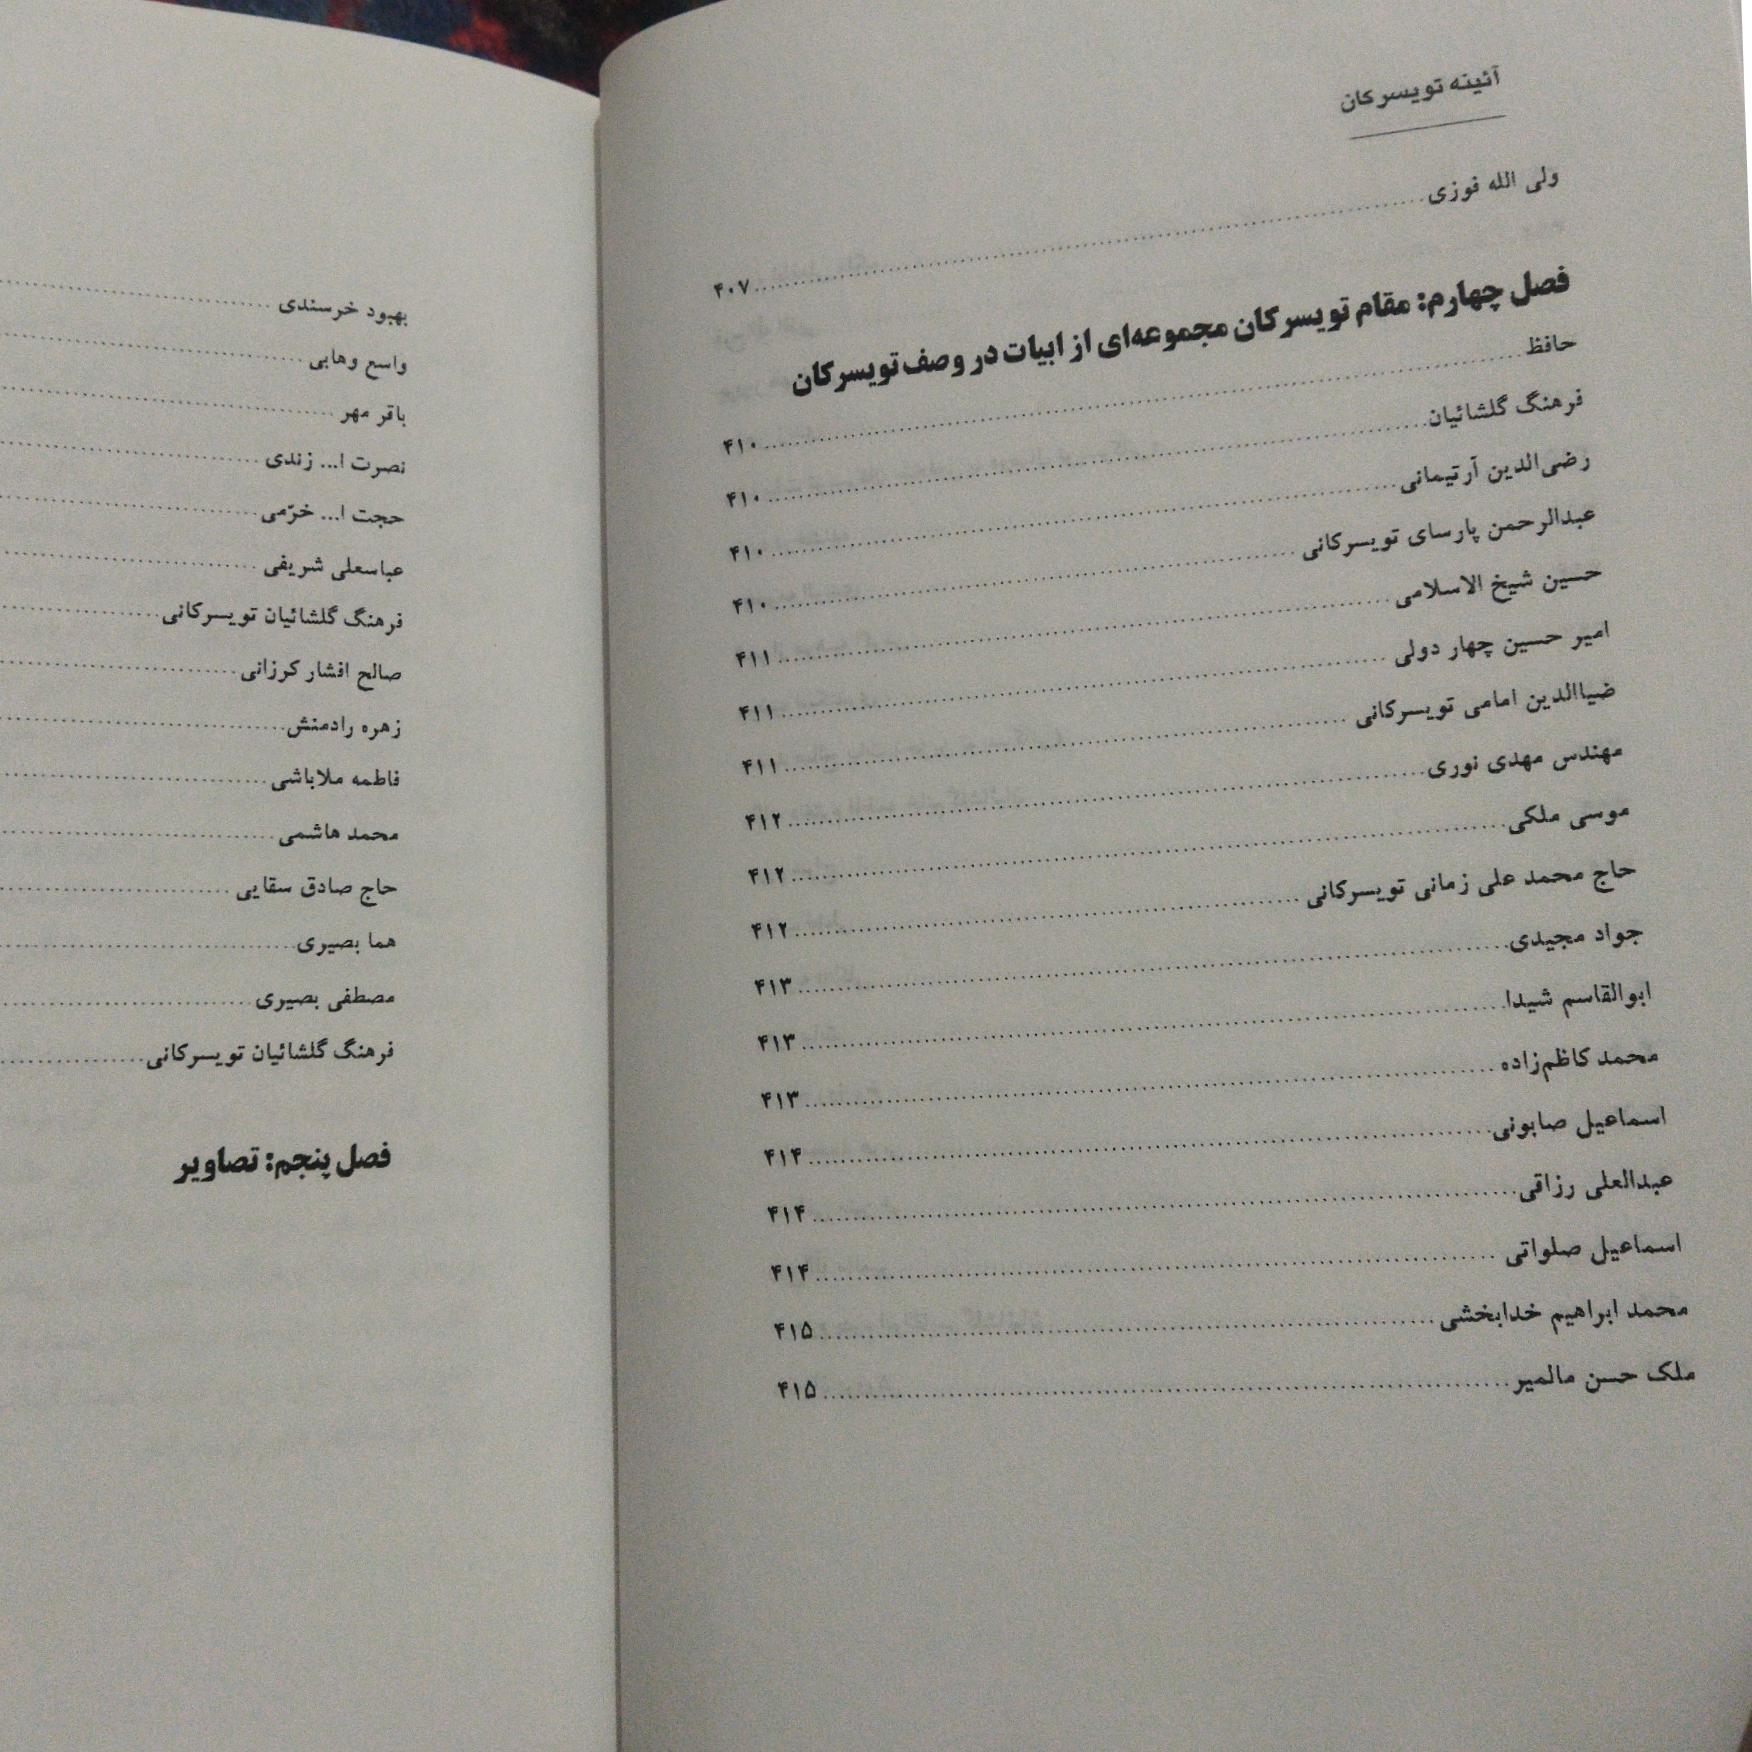 آئینه تویسرکان
ولی الله فوزی ۴۰۷
فصل چهارم: مقام تویسرکان مجموعه‌ای از ابیات در وصف تویسرکان
حافظ ۴۱۰
فرهنگ گلشائیان ۴۱۰
رضی‌الدین آرتیمانی ۴۱۰
عبدالرحمن پارسای تویسرکانی ۴۱۰
حسین شیخ الاسلامی ۴۱۱
امیر حسین چهار دولی ۴۱۱
ضیاالدین امامی تویسرکانی ۴۱۱
مهندس مهدی نوری ۴۱۲
موسی ملکی ۴۱۲
حاج محمد علی زمانی تویسرکانی ۴۱۲
جواد مجیدی ۴۱۳
ابوالقاسم شیدا ۴۱۳
محمد کاظم‌زاده ۴۱۳
اسماعیل صابونی ۴۱۴
عبدالعلی رزاقی ۴۱۴
اسماعیل صلواتی ۴۱۴
محمد ابراهیم خدابخشی ۴۱۵
ملک حسن مالمیر ۴۱۵
بهبود خرسندی
واسع وهابی
باقر مهر
نصرت ا... زندی
حجت ا... خرّمی
عباسعلی شریفی
فرهنگ گلشائیان تویسرکانی
صالح افشار کرزانی
زهره رادمنش
فاطمه ملاباشی
محمد هاشمی
حاج صادق سقایی
هما بصیری
مصطفی بصیری
فرهنگ گلشائیان تویسرکانی
فصل پنجم: تصاویر